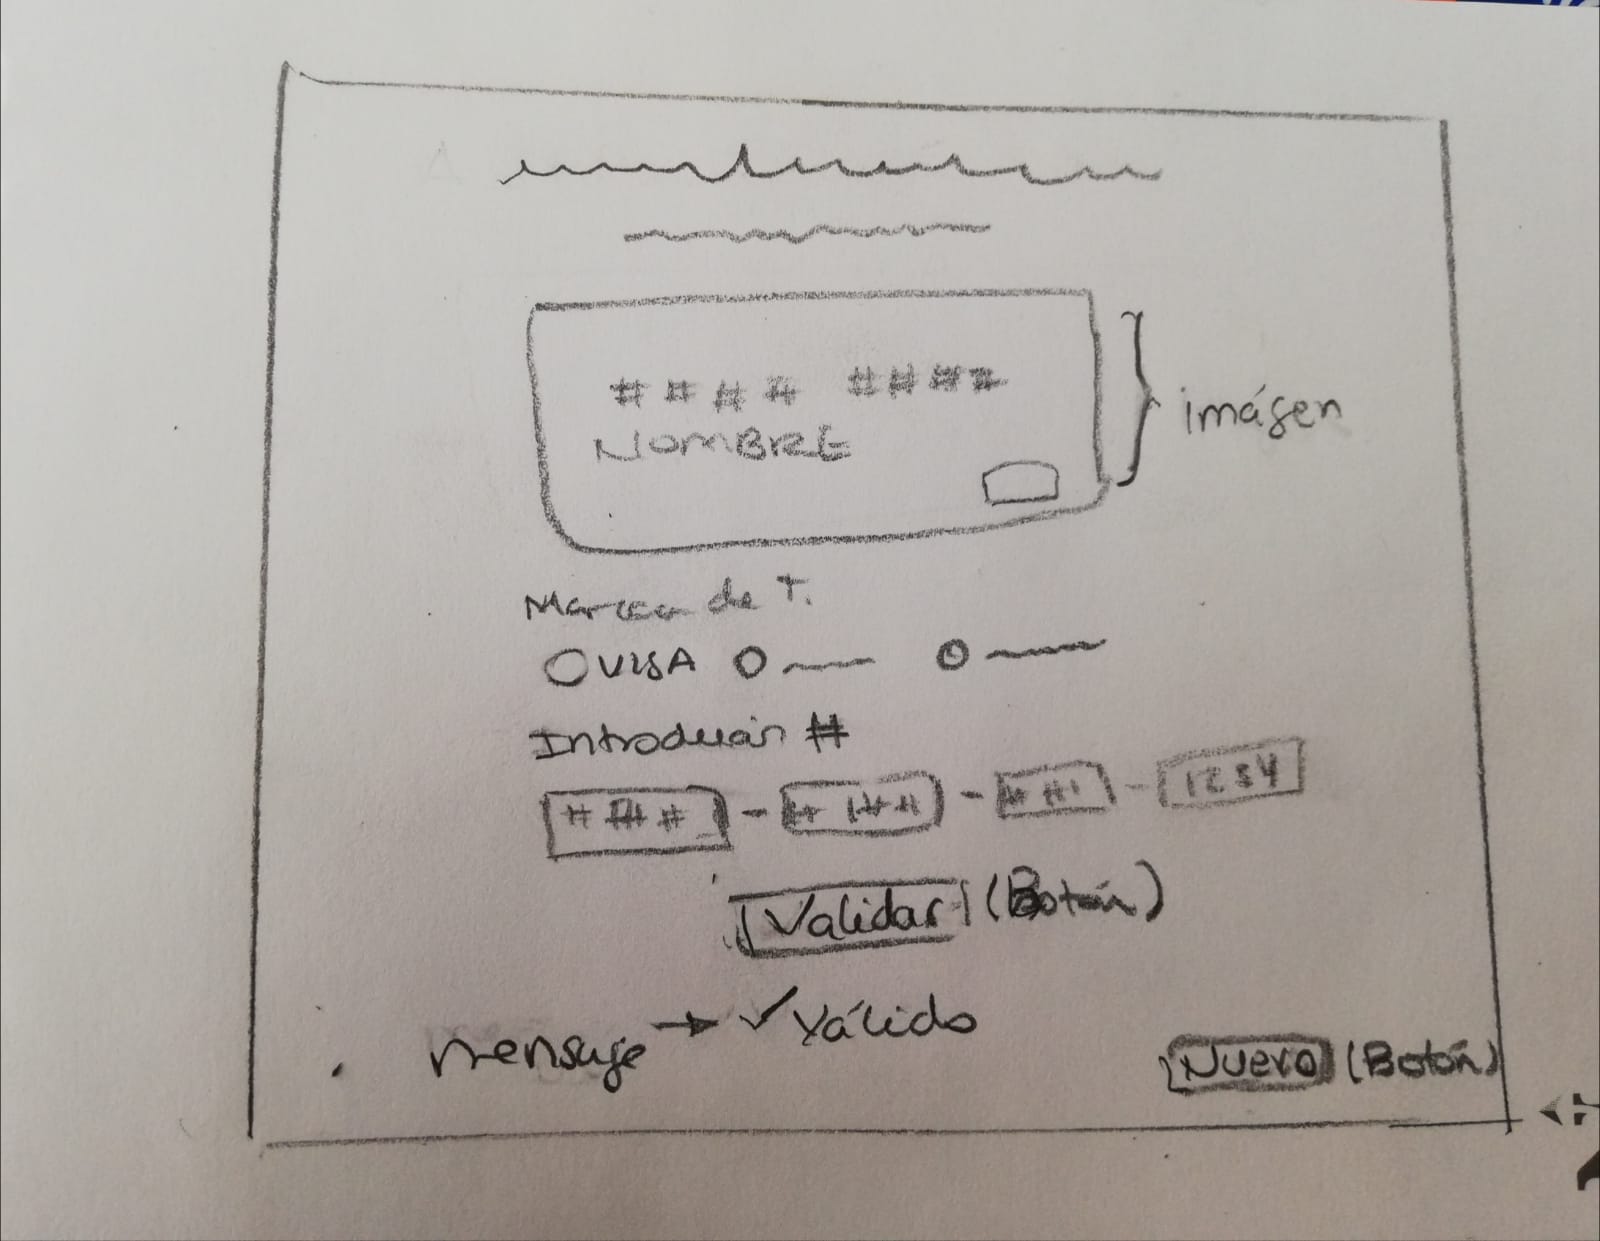 # # # # # # # #
NOMBRE
imágen
Marca de T.
O VISA O O
Introducir #
# # # - # # # - # # # - 1234
Validar (Botón)
mensaje → ✓ Válido
Nuevo (Botón)